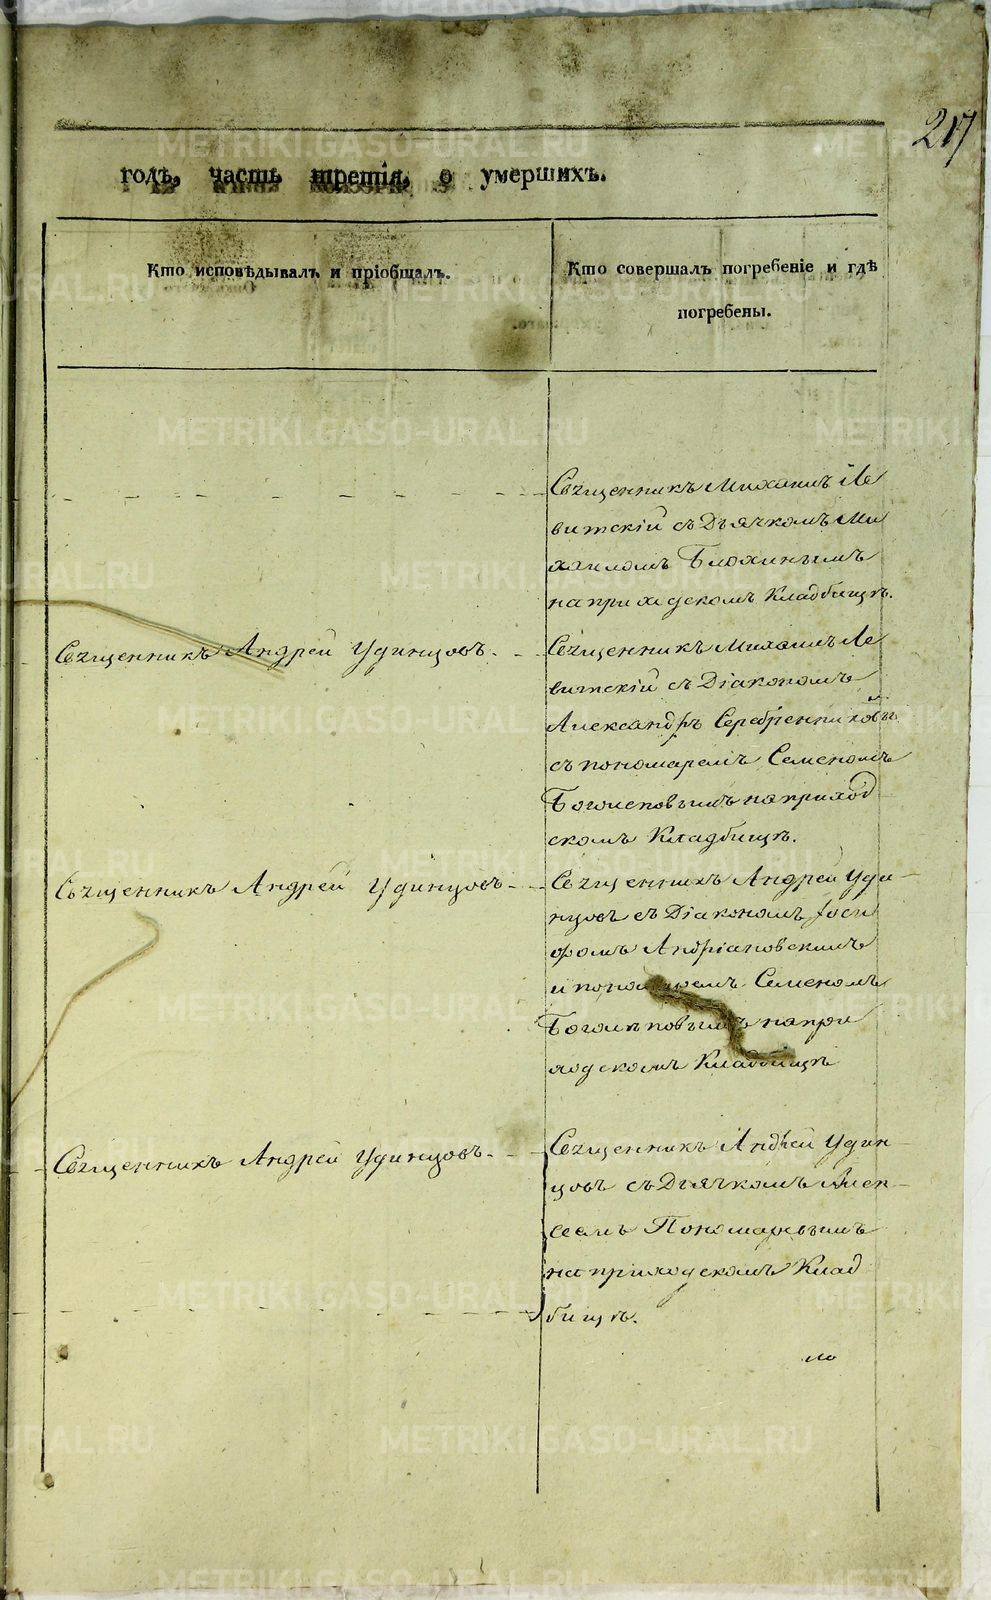 217
годъ, часть третія, о умершихъ.
Кто исповѣдывалъ и пріобщалъ.
Кто совершалъ погребеніе и гдѣ
погребены.
Священникъ Михаилъ Ле
витскій съ Дьячкомъ Ми
хаиломъ Блохинымъ
на приходскомъ Кладбищѣ.
Священникъ Андрей Удинцовъ.
Священникъ Михаилъ Ле
витскій съ Діакономъ
Александръ Серебренниковы
съ пономаремъ Семеномъ
Боголеповымъ на приход
скомъ Кладбищѣ.
Священникъ Андрей Удинцовъ
Священникъ Андрей Уди
нцовъ съ Діакономъ Іоси
фомъ Андріановскимъ
и пономаремъ Семеномъ
Боголѣповымъ на при
ходскомъ Кладбищѣ
Священникъ Андрей Удинцовъ.
Священникъ Андрей Удин
цовъ съ Дьячкомъ Алек
сеемъ Пономаревымъ
на приходскомъ Клад
бищѣ.
METRIKI.GASO-URAL.RU